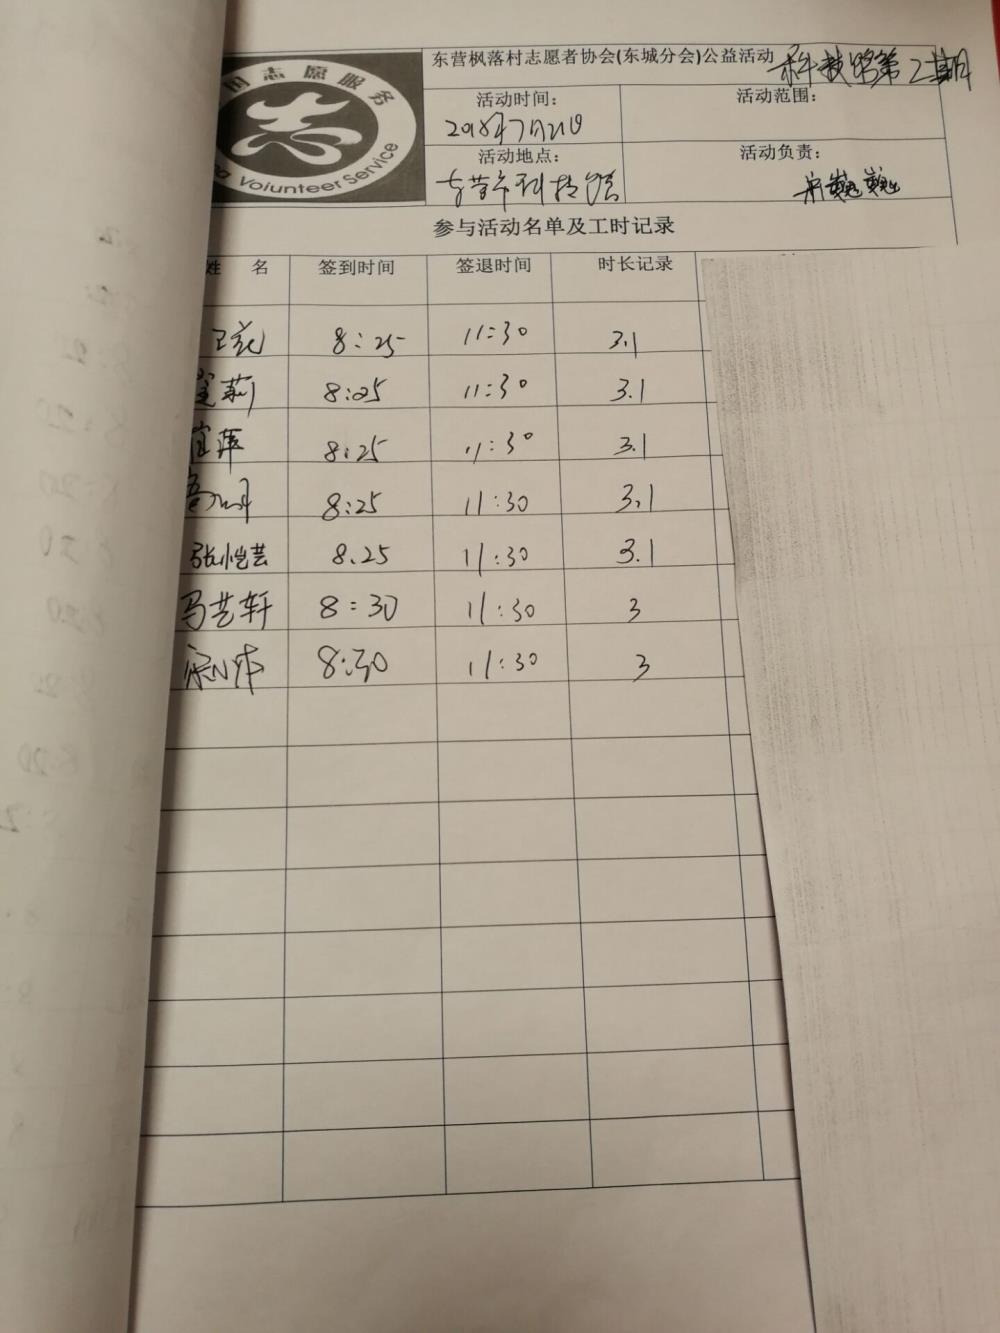 志愿服务
Volunteer Service
东营枫落村志愿者协会(东城分会)公益活动 科技馆第二期
活动时间：
2018年7月21日
活动范围：
活动地点：
东营市科技馆
活动负责：
参与活动名单及工时记录
姓 名 签到时间 签退时间 时长记录
8:25 11:30 3.1
8:25 11:30 3.1
崔萍 8:25 11:30 3.1
8:25 11:30 3.1
张恺芸 8.25 11:30 3.1
马艺轩 8:30 11:30 3
8:30 11:30 3